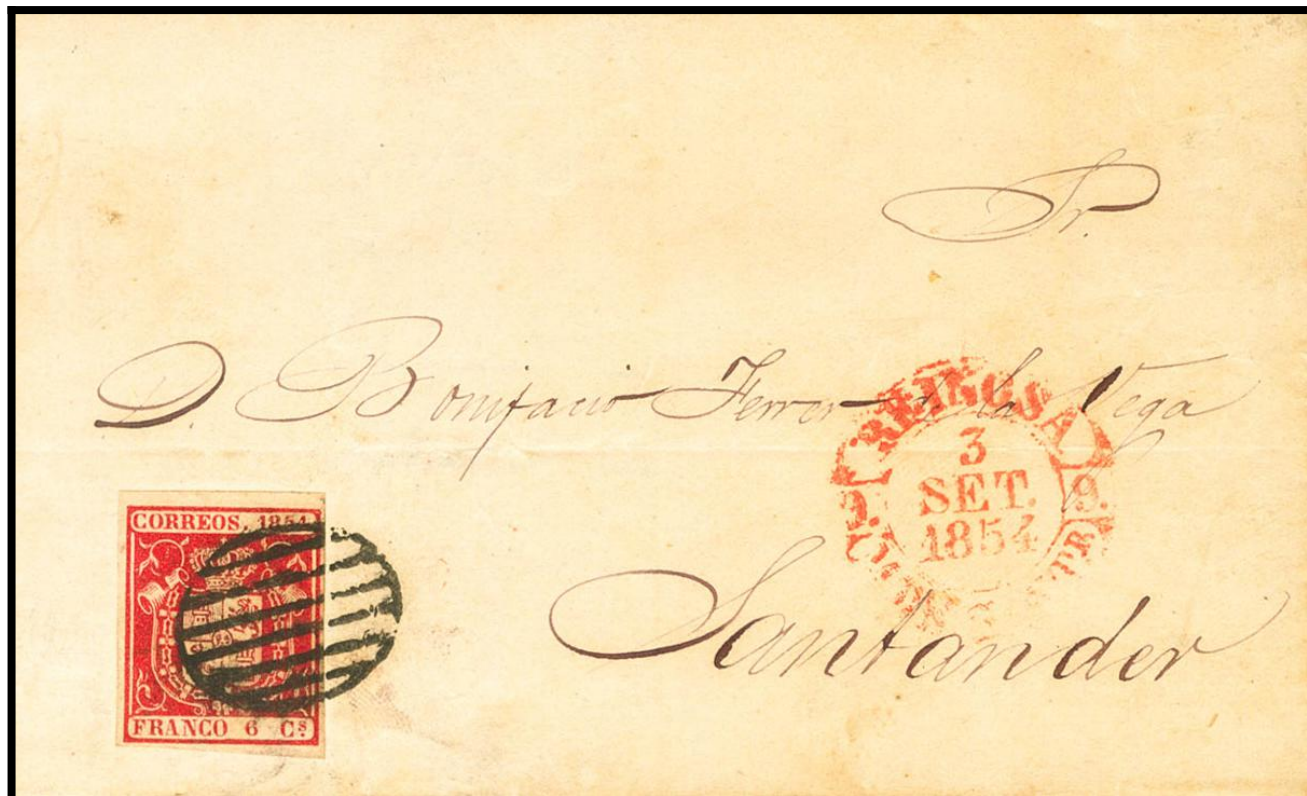 Sr.
D. Bonifacio Ferrer de la Vega
REINOSA
3
SET.
1854
9.
Santander
CORREOS. 1854
FRANCO 6 Cs.